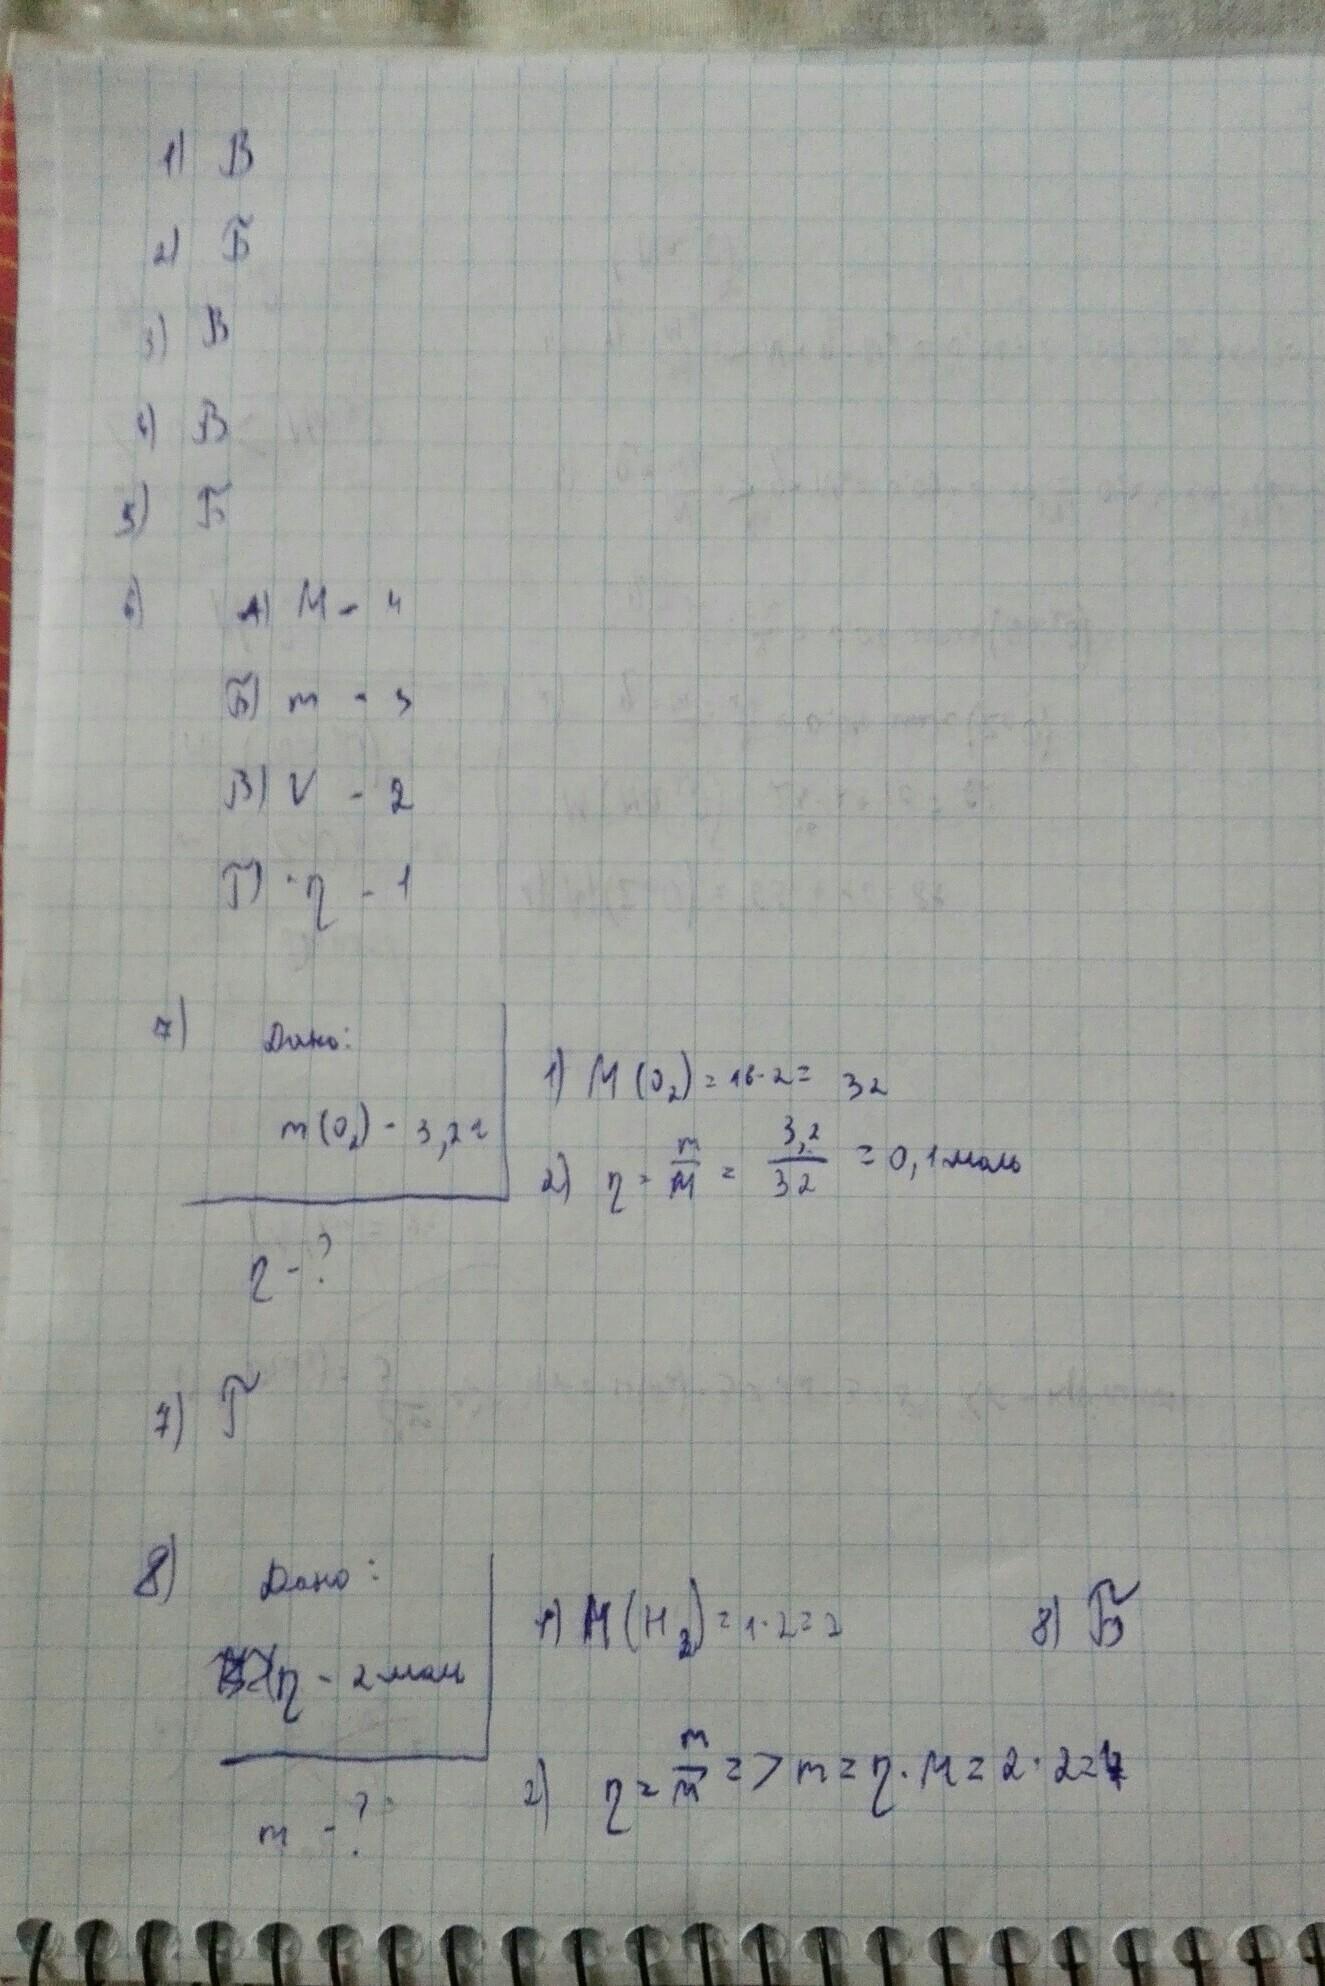 1) В
2) Б
3) В
4) В
5) Б
6) А) M - 4
Б) m - 3
В) V - 2
Г) η - 1
7) Дано:
m(O₂) - 3,2г
η - ?
1) M(O₂) = 16·2 = 32
2) η = m/M = 3,2/32 = 0,1 моль
7) Г
8) Дано:
η - 2 моль
m - ?
1) M(H₂) = 1·2 = 2
2) η = m/M => m = η·M = 2·2 = 4
8) Б